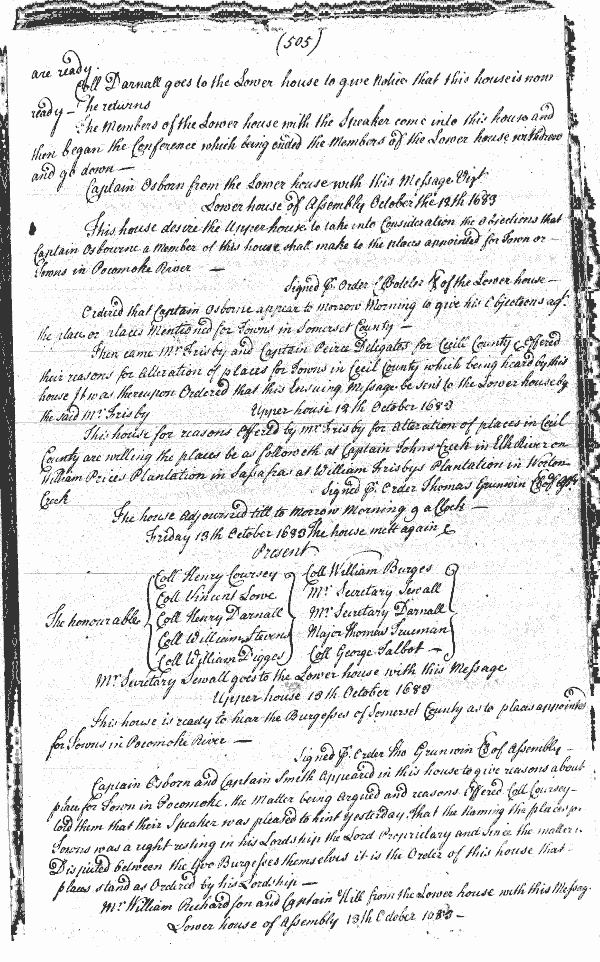 (505)
are ready.
Coll Darnall goes to the Lower house to give Notice that this house is now
ready — he returns
The Members of the Lower house with the Speaker come into this house and
then began the Conference which being ended the Members of the Lower house withdrew
and go down —
Captain Osborn from the Lower house with this Message Vizt
Lower house of Assembly October the 18th 1683
This house desire the Upper house to take into Consideration the Objections that
Captain Osbourne a Member of this house shall make to the places appointed for Town or
Towns in Pocomoke River —
Signed p. Order of the Lower house —
Ordered that Captain Osborne appear to morrow Morning to give his Objections agt.
the place or places Mentioned for Towns in Somerset County —
Then came Mr Frisby and Captain Peirce Deligates for Cecill County & Offered
their reasons for Alteration of places for Towns in Cecil County which being heard by this
house It was thereupon Ordered that this Ensuing Message be sent to the Lower house by
the said Mr Frisby Upper house 18th October 1683
This house for reasons Offered by Mr Frisby for alteration of places in Cecil
County are willing the places be as followeth at Captain Johns Creek in Elk River on
William Prices Plantation in Sasafras at William Frisbys Plantation in Worton
Creek
Signed p. Order Thomas Grunwin
The house Adjourned till to Morrow Morning 9 a Clock —
Friday 18th October 1683 The house mett again &
Present
The honourable
Coll Henry Coursey Coll William Burges
Coll Vincent Lowe Mr Secretary Sewall
Coll Henry Darnall Mr Secretary Darnall
Coll William Stevens Major Thomas Trueman
Coll William Digges Coll George Talbot —
Mr Secretary Sewall goes to the Lower house with this Message
Upper house 18th October 1683
This house is ready to hear the Burgesses of Somerset County as to places appointed
for Towns in Pocomoke River —
Signed p. Order Tho Grunwin Cl of Assembly —
Captain Osborn and Captain Smith Appeared in this house to give reasons about
place for Town in Pocomoke, the Matter being Argued and reasons Offered Coll Coursey
told them that their Speaker was pleased to hint yesterday, that the Naming the places
Towns was a right resting in his Lordship the Lord Propriary and since the matter
Disputed between the two Burgesses themselves it is the Order of this house that
places stand as Ordered by his Lordship —
Mr William Richardson and Captain Hill from the Lower house with this Messag
Lower house of Assembly 18th October 1683 —